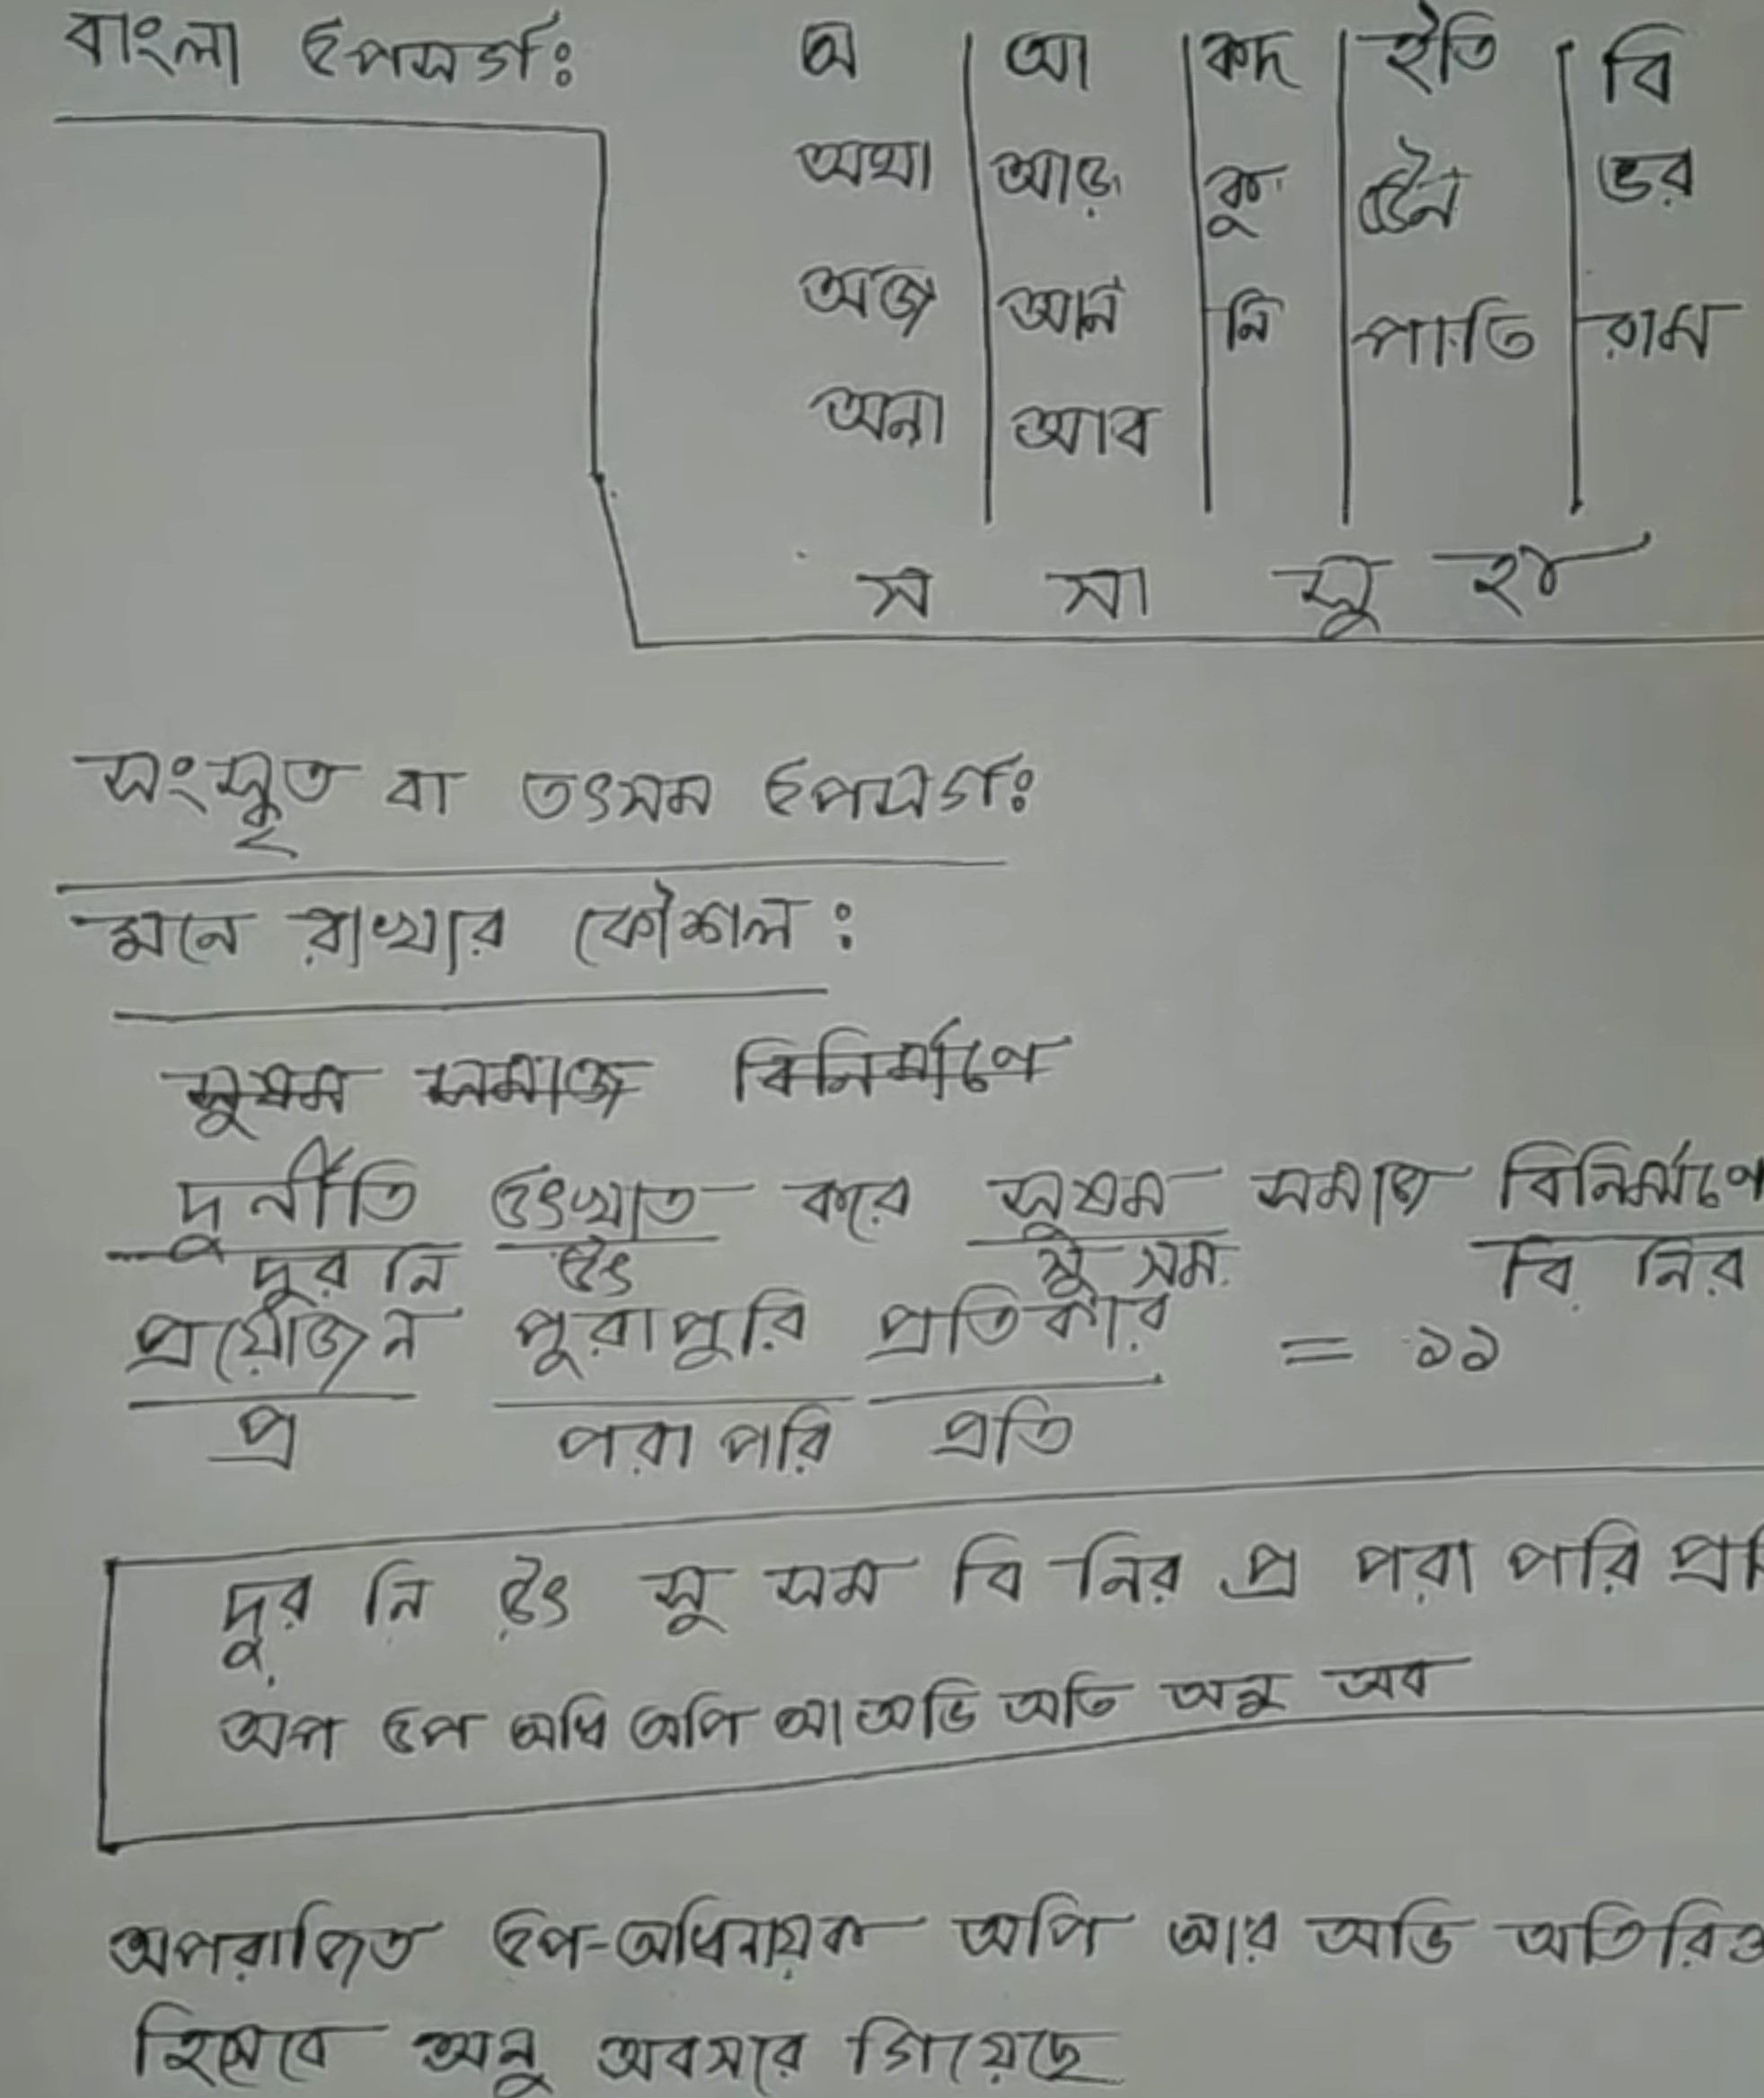 বাংলা উপসর্গঃ
অ | আ | কদ | ইতি | বি
অঘা | আড় | কু | ঊন | ভর
অজ | আন | নি | পাতি | রাম
অনা | আব
স সা সু হা
সংস্কৃত বা তৎসম উপসর্গঃ
মনে রাখার কৌশল :
সুষম সমাজ বিনির্মাণে
দুর্নীতি উৎখাত করে সুষম সমাজ বিনির্মাণে
দুর নি উৎ সু সম বি নির
প্রয়োজন পুরাপুরি প্রতিকার = ১১
প্র পরা পরি প্রতি
দুর নি উৎ সু সম বি নির প্র পরা পরি
অপ উপ অধি অপি আ অভি অতি অনু অব
অপরাজিত উপ-অধিনায়ক অপি আর অভি
হিসেবে অনু অবসরে গিয়েছে